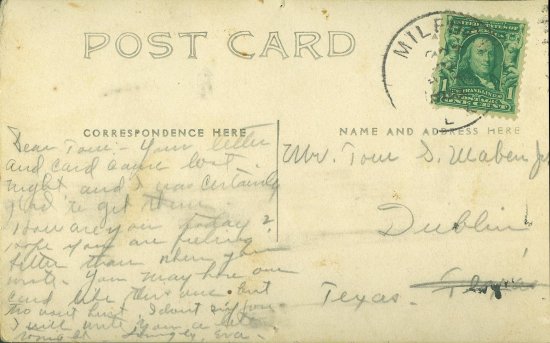 POST CARD
MILF
1 1
B. FRANKLIN
ONE CENT
CORRESPONDENCE HERE
NAME AND ADDRESS HERE
Dear Tom - Your letter
and card came last
night and I was certainly
glad to get them.
How are you today?
Hope you are feeling
better than when you
wrote. You may have one
card like this one. But
I will write you a
Eva.
Mr. Tom S. Maben Jr
Dublin,
Texas. Texas